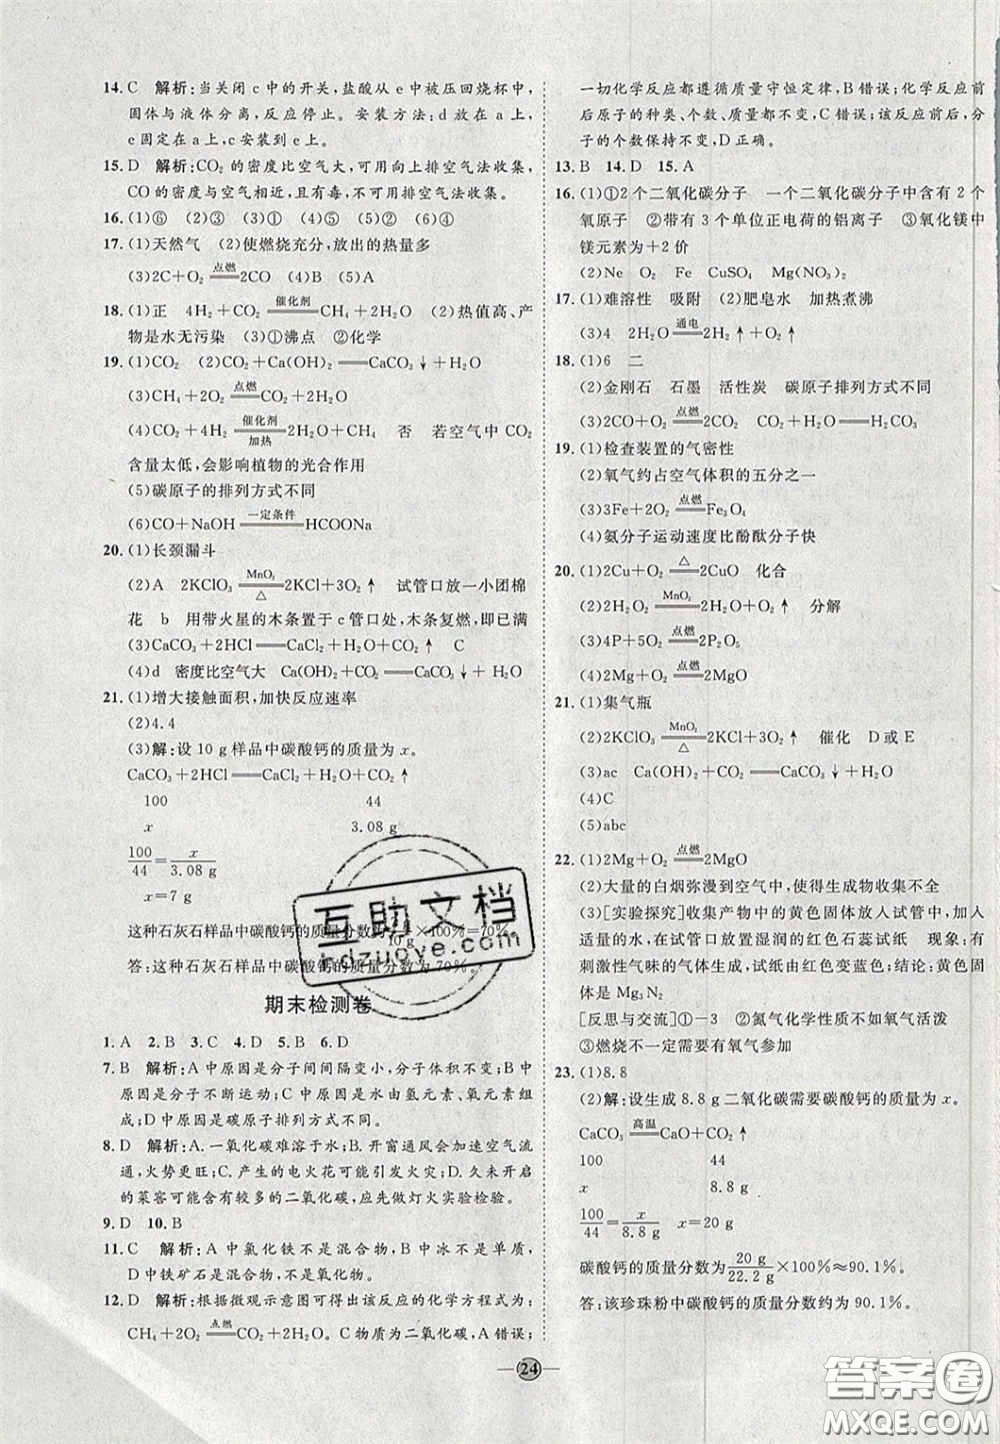 14. C 解析:当关闭 c 中的开关,盐酸从 e 中被压回烧杯中,
固体与液体分离,反应停止。安装方法:d 在 a 上,
e 固定在 a 上,c 安装到 e 上。
15. D 解析:CO₂ 的密度比空气大,可用向上排空气法收集,
CO 的密度与空气相近,且有毒,不可用排空气法收集。
16. (1)⑥ (2)③ (3)① (4)② (5)⑥ (6)④
17. (1)天然气 (2)使燃烧充分,放出的热量多
(3)2C+O₂ 点燃 2CO (4)B (5)A
18. (1)正 4H₂+CO₂ 催化剂 CH₄+2H₂O (2)热值高、产
物是水无污染 (3)①沸点 ②化学
19. (1)CO₂ (2)CO₂+Ca(OH)₂══CaCO₃↓+H₂O
(3)CH₄+2O₂ 点燃 CO₂+2H₂O
(4)CO₂+4H₂ 催化剂 加热 2H₂O+CH₄ 否 若空气中 CO₂
含量太低,会影响植物的光合作用
(5)碳原子的排列方式不同
(6)CO+NaOH 一定条件 HCOONa
20. (1)长颈漏斗
(2)A 2KClO₃ MnO₂ △ 2KCl+3O₂↑ 试管口放一小团棉
花 b 用带火星的木条置于 c 管口处,木条复燃,即已满
(3)CaCO₃+2HCl══CaCl₂+H₂O+CO₂↑ C
(4)d 密度比空气大 Ca(OH)₂+CO₂══CaCO₃↓+H₂O
21. (1)增大接触面积,加快反应速率
(2)4.4
(3)解:设 10 g 样品中碳酸钙的质量为 x。
CaCO₃+2HCl══CaCl₂+H₂O+CO₂↑
100 44
x 3.08 g
100/44=x/3.08 g
x=7 g
这种石灰石样品中碳酸钙的质量分数为 7 g/10 g×100%=70%
答:这种石灰石样品中碳酸钙的质量分数为 70%。
期末检测卷
1. A 2. B 3. C 4. D 5. B 6. D
7. B 解析:A 中原因是分子间间隔变小,分子体积不变;B 中
原因是分子不断运动;C 中原因是由氢元素、氧元素组
成;D 中原因是碳原子排列方式不同。
8. D 解析:A. 一氧化碳难溶于水;B. 开窗通风会加速空气流
通,火势更旺;C. 产生的电火花可能引发火灾;D. 久未开启
的菜窖可能含有较多的二氧化碳,应先做灯火实验检验。
9. D 10. B
11. C 解析:A 中氯化铁不是混合物,B 中冰不是单质,
D 中铁矿石是混合物,不是氧化物。
12. D 解析:根据微观示意图可得出该反应的化学方程式为:
CH₄+2O₂ 点燃 CO₂+2H₂O。C 物质为二氧化碳,A 错误;
一切化学反应都遵循质量守恒定律,B 错误;该反应前
后原子的种类、个数、质量都不变,C 错误;该反应前后,分
子的个数保持不变,D 正确。
13. B 14. D 15. A
16. (1)①2 个二氧化碳分子 一个二氧化碳分子中含有 2 个
氧原子 ②带有 3 个单位正电荷的铝离子 ③氧化镁中
镁元素为+2 价
(2)Ne O₂ Fe CuSO₄ Mg(NO₃)₂
17. (1)难溶性 吸附 (2)肥皂水 加热煮沸
(3)4 2H₂O 通电 2H₂↑+O₂↑
18. (1)6 二
(2)金刚石 石墨 活性炭 碳原子排列方式不同
(3)2CO+O₂ 点燃 2CO₂ CO₂+H₂O══H₂CO₃
19. (1)检查装置的气密性
(2)氧气约占空气体积的五分之一
(3)3Fe+2O₂ 点燃 Fe₃O₄
(4)氨分子运动速度比酚酞分子快
20. (1)2Cu+O₂ △ 2CuO 化合
(2)2H₂O₂ MnO₂ 2H₂O+O₂↑ 分解
(3)4P+5O₂ 点燃 2P₂O₅
(4)2Mg+O₂ 点燃 2MgO
21. (1)集气瓶
(2)2KClO₃ MnO₂ △ 2KCl+3O₂↑ 催化 D 或 E
(3)ac Ca(OH)₂+CO₂══CaCO₃↓+H₂O
(4)C
(5)abc
22. (1)2Mg+O₂ 点燃 2MgO
(2)大量的白烟弥漫到空气中,使得生成物收集不全
(3)[实验探究]收集产物中的黄色固体放入试管中,加入
适量的水,在试管口放置湿润的红色石蕊试纸 现象:有
刺激性气味的气体生成,试纸由红色变蓝色;结论:黄色固
体是 Mg₃N₂
[反思与交流]①-3 ②氮气化学性质不如氧气活泼
③燃烧不一定需要有氧气参加
23. (1)8.8
(2)解:设生成 8.8 g 二氧化碳需要碳酸钙的质量为 x。
CaCO₃ 高温 CaO+CO₂↑
100 44
x 8.8 g
100/44=x/8.8 g x=20 g
碳酸钙的质量分数为 20 g/22.2 g×100%≈90.1%。
答:该珍珠粉中碳酸钙的质量分数约为 90.1%。
24
互助文档
hdzuoye.com
答案圈
MXQE.COM